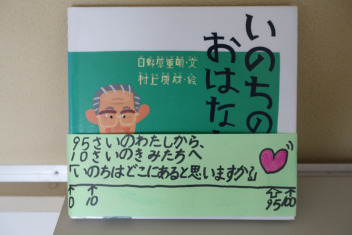 いのちの
おはなし
日野原重明・文
村上康成・絵
95さいのわたしから、
10さいのきみたちへ
「いのちはどこにあると思いますか」
0 10 95 100